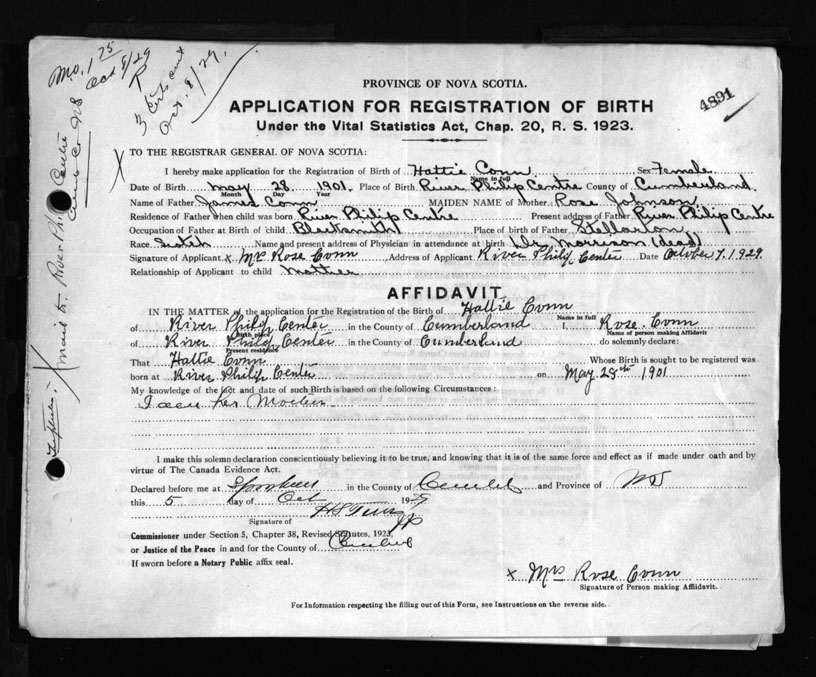 Mo. 1 75
Oct 8/29
P
3 certs sent
Oct. 8/29.
mail to River Phi Centre
Cum Co NS
4891
PROVINCE OF NOVA SCOTIA.
APPLICATION FOR REGISTRATION OF BIRTH
Under the Vital Statistics Act, Chap. 20, R. S. 1923.
X TO THE REGISTRAR GENERAL OF NOVA SCOTIA:
I hereby make application for the Registration of Birth of Hattie Conn Sex Female
Name in full
Date of Birth May 28 1901. Place of Birth River Philip Centre County of Cumberland.
Month Day Year
Name of Father James Conn MAIDEN NAME of Mother Rose Johnson
Residence of Father when child was born River Philip Centre Present address of Father River Philip Centre
Occupation of Father at Birth of child Blacksmith Place of birth of Father Stellarton
Race Scotch Name and present address of Physician in attendance at birth Dr. Morrison (dead)
Signature of Applicant x Mrs Rose Conn Address of Applicant River Philip Center Date October 7, 1929.
Relationship of Applicant to child Mother
AFFIDAVIT
IN THE MATTER of the application for Registration of the Birth of Hattie Conn
Name in full
of River Philip Center in the County of Cumberland I, Rose Conn
Birth place Name of person making Affidavit
of River Philip Center in the County of Cumberland do solemnly declare:
Present residence
That Hattie Conn Whose Birth is sought to be registered was
born at River Philip Center on May 28th 1901
My knowledge of the fact and date of such Birth is based on the following Circumstances:
I am her Mother
I make this solemn declaration conscientiously believing it to be true, and knowing that it is of the same force and effect as if made under oath and by
virtue of The Canada Evidence Act.
Declared before me at in the County of Cumbld and Province of NS
this 5 day of Oct 1929
JP
Signature of
Commissioner under Section 5, Chapter 38, Revised Statutes. 1923,
or Justice of the Peace in and for the County of Cumbld
If sworn before a Notary Public affix seal.
x Mrs Rose Conn
Signature of Person making Affidavit.
For Information respecting the filling out of this Form, see Instructions on the reverse side.